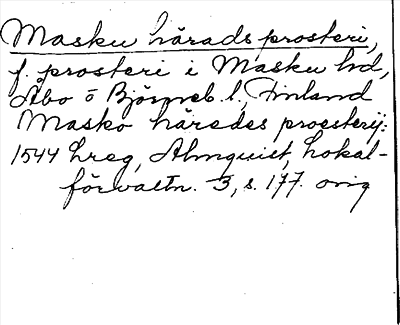 Masku härads prosteri,
f. prosteri i Masku hd,
Åbo o Björneb. l., Finland
Masko häredes proesterij:
1544 Lreg, Almquist, Lokal-
förvaltn. 3, s. 177. orig